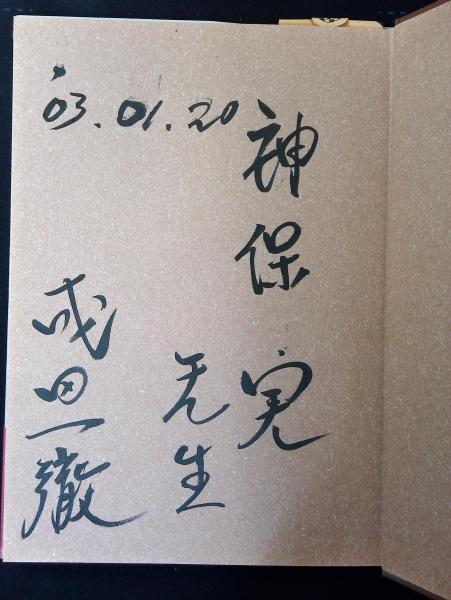 '03.01.20
神保
先生
成田一徹